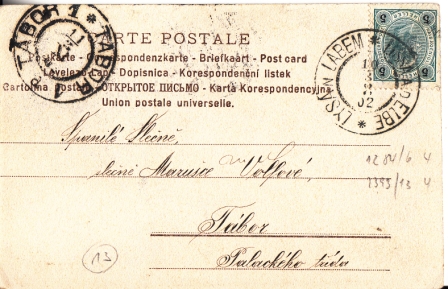 TÁBOR 1 * TABOR
CARTE POSTALE
Postkarte - Correspondenzkarte - Briefkaart - Post card
Levelező-Lap - Dopisnica - Korespondenční lístek
Cartolina postale - ОТКРЫТОЕ ПИСЬМО - Karta Korespondencyjna
Union postale universelle.
LYSÁ N. LABEM * LISSA A. D. ELBE
02
5 5
Spanilé Slečně,
slečně Marusce Volfové,
1284/6 4
2393/13 4
Tábor
Palackého
13